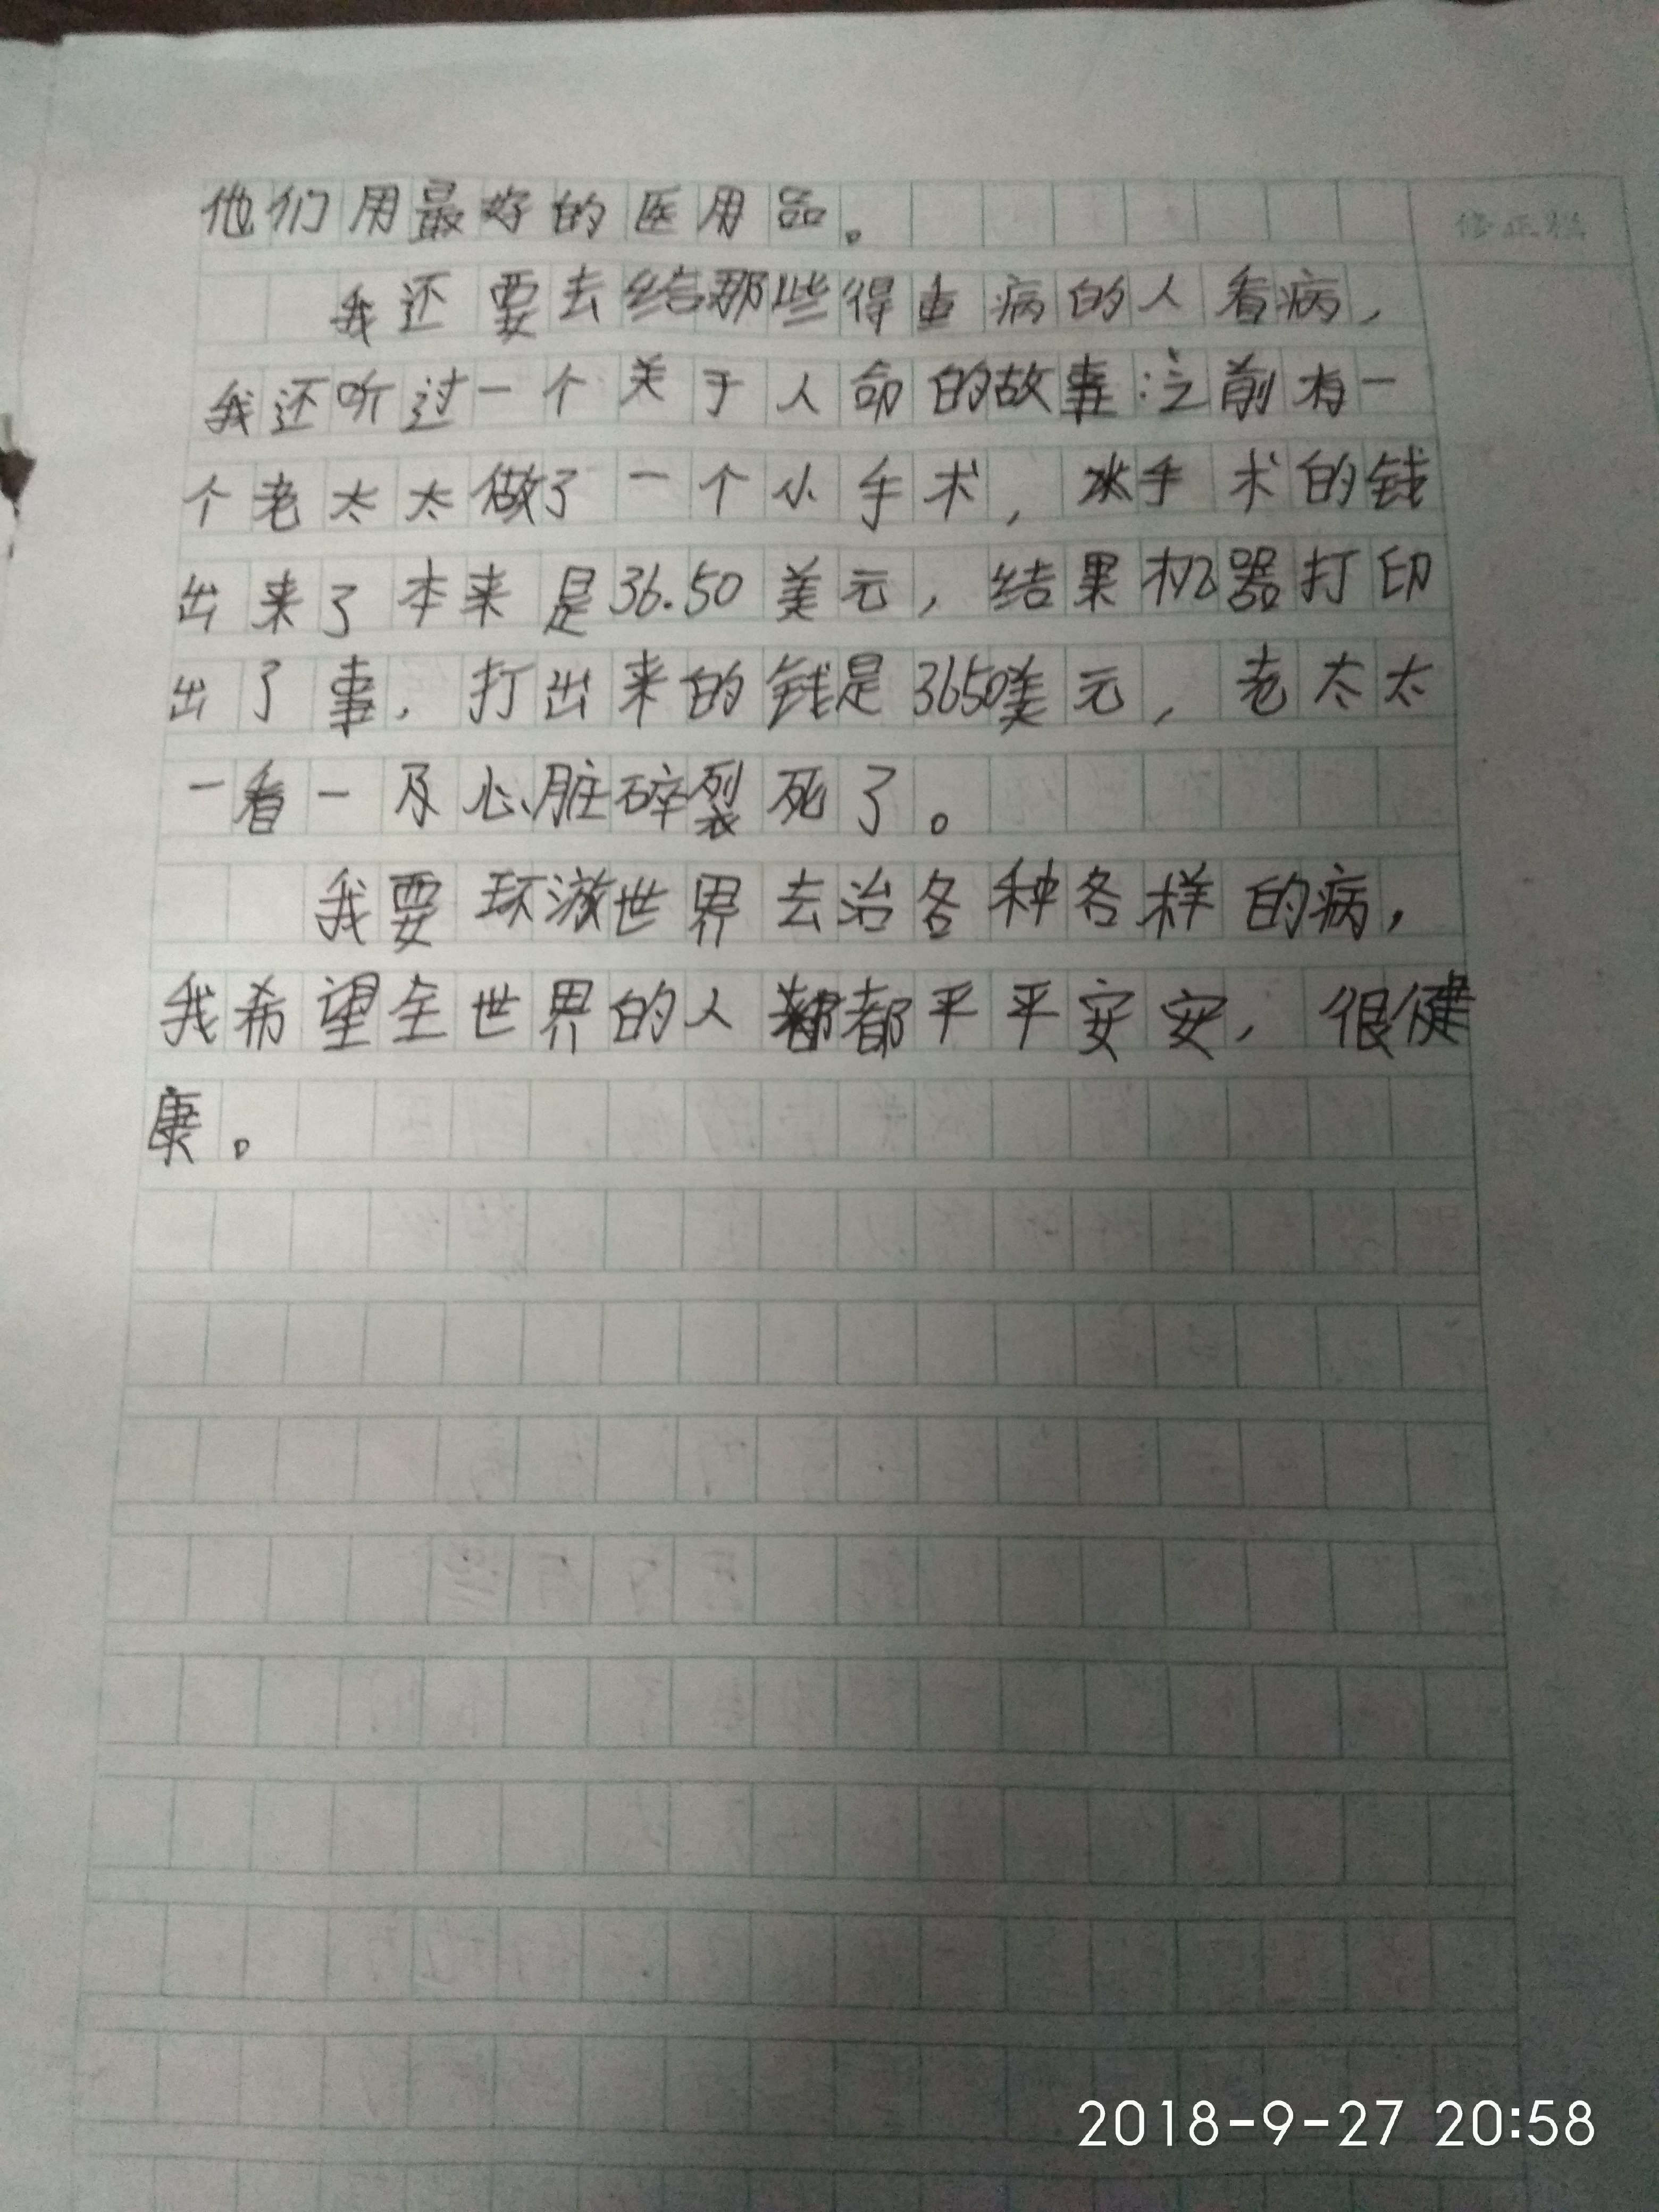 他们用最好的医用品。
修正栏
我还要去给那些得重病的人看病，
我还听过一个关于人命的故事:之前有一
个老太太做了一个小手术，手术的钱
出来了本来是36.50美元，结果机器打印
出了事，打出来的钱是3650美元，老太太
一看一及心脏碎裂死了。
我要环游世界去治各种各样的病，
我希望全世界的人都平平安安，很健
康。
2018-9-27 20:58